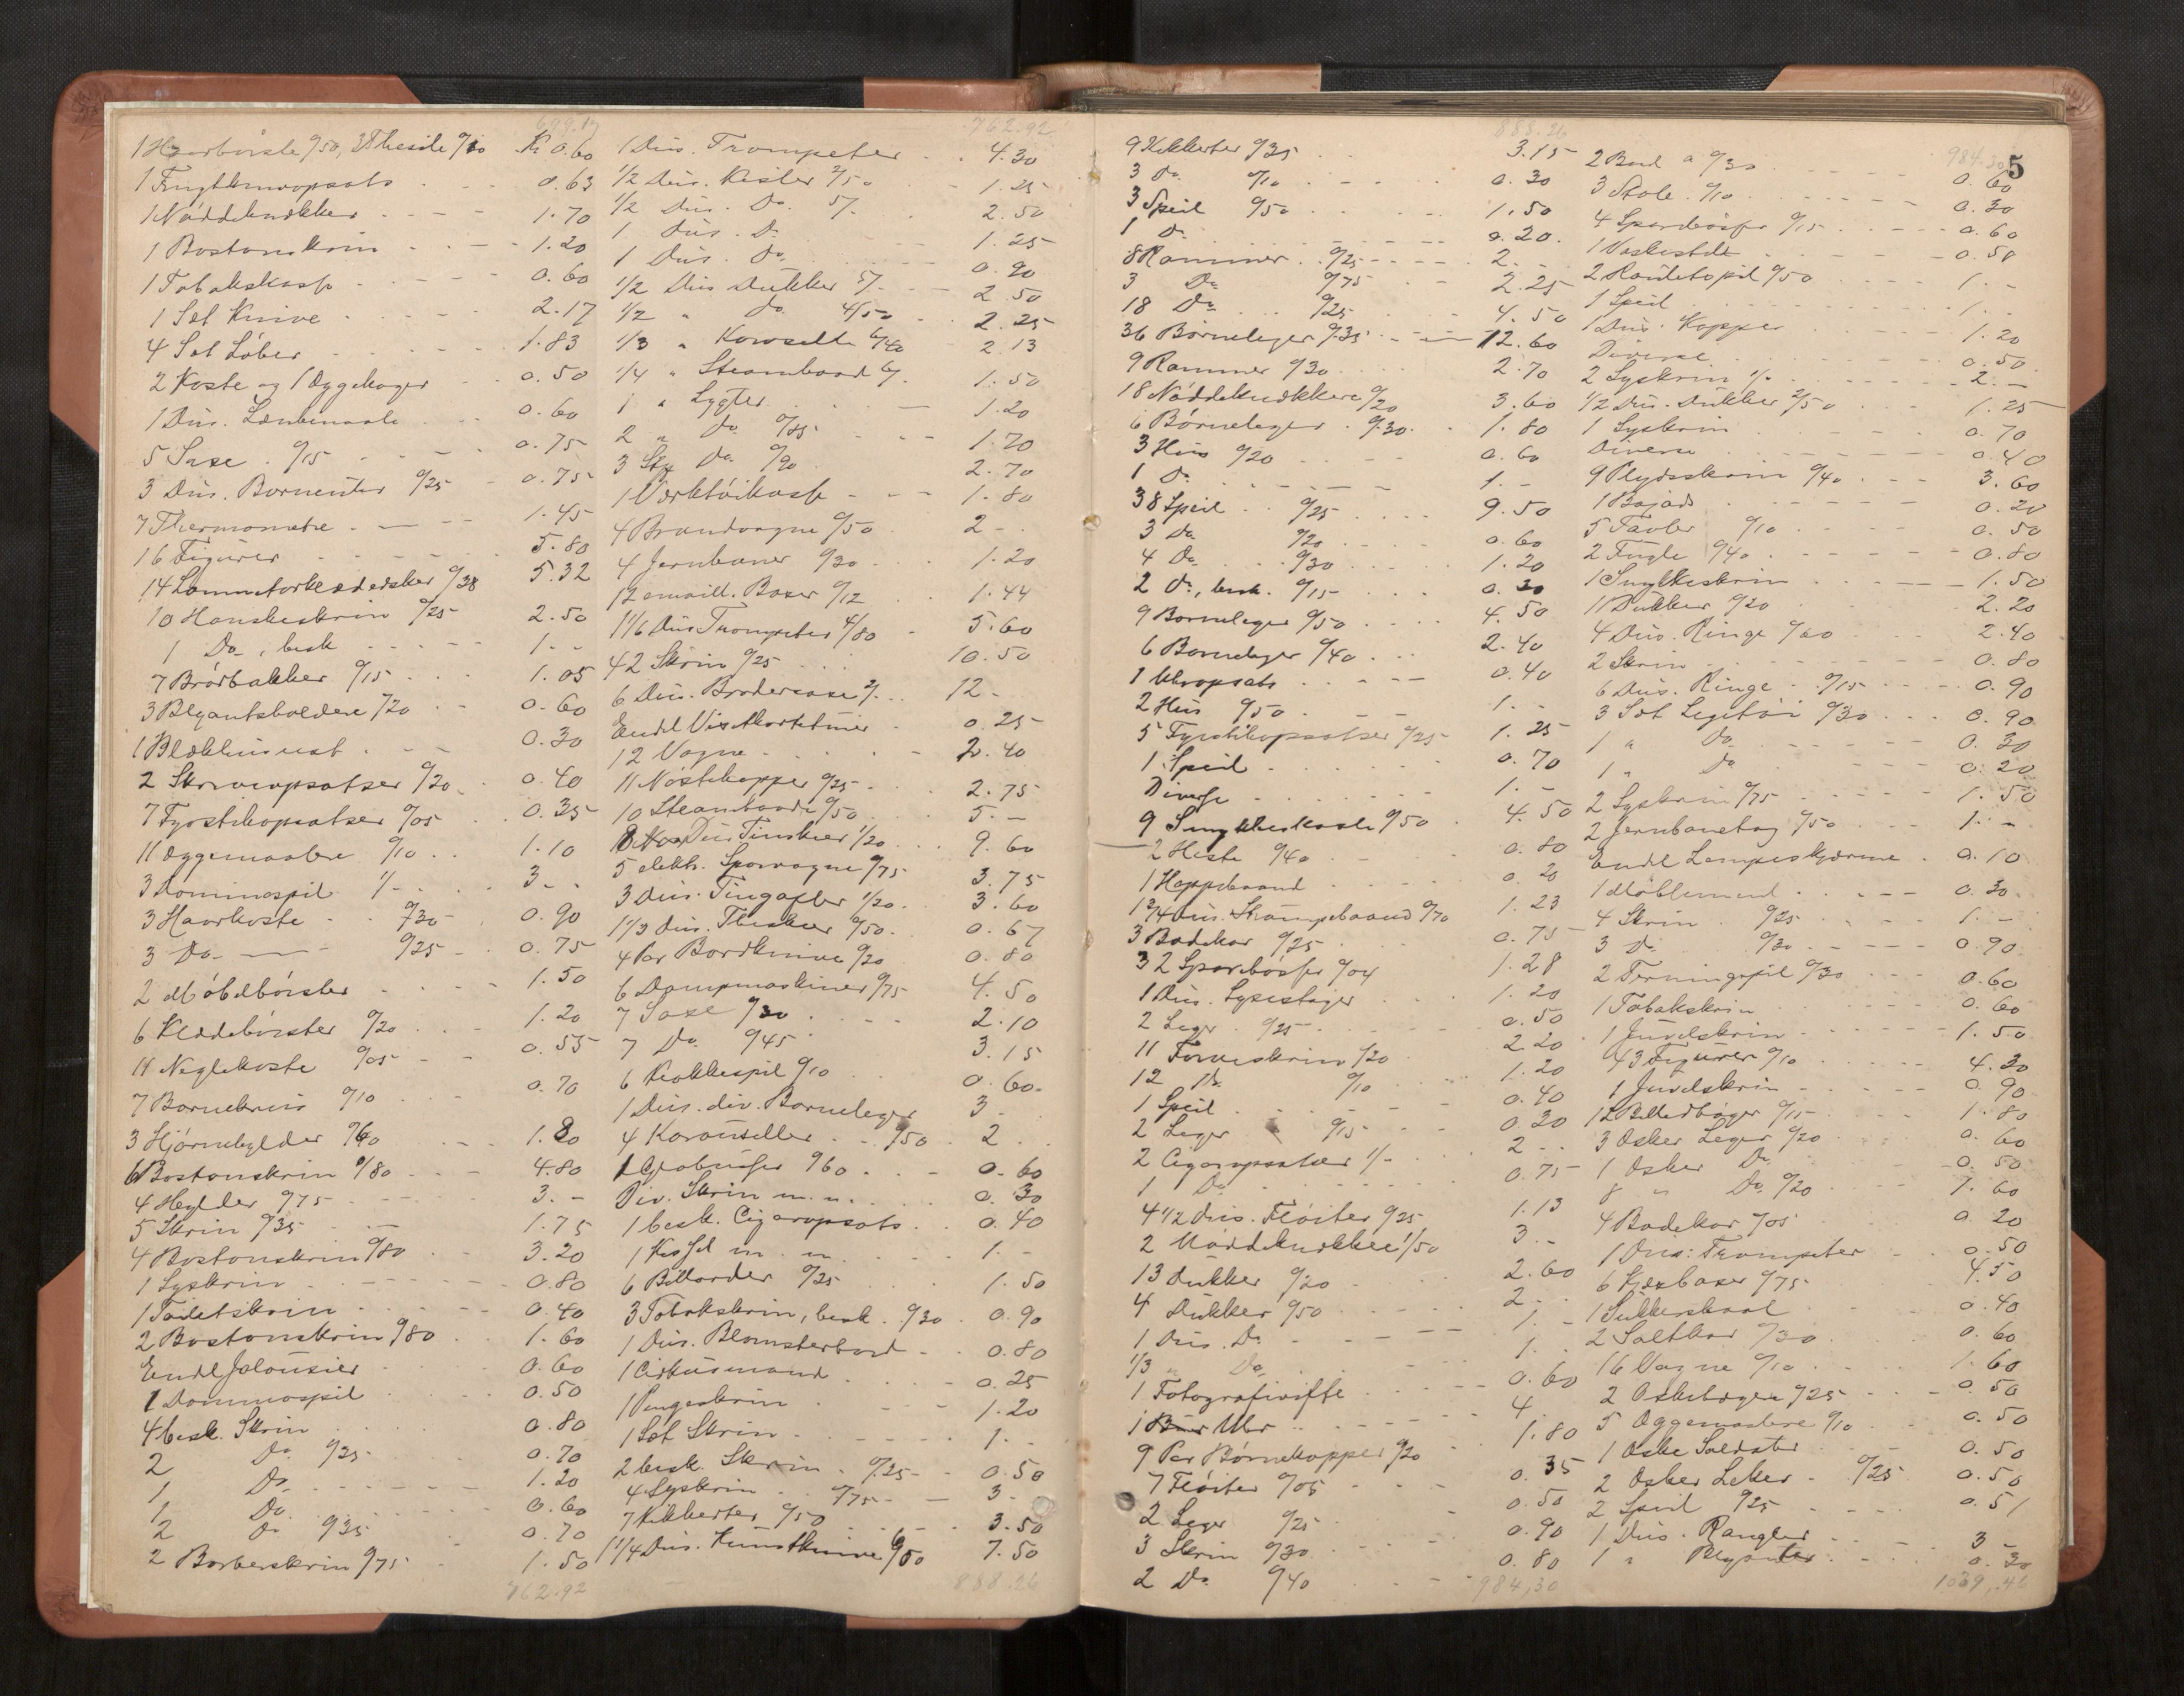 699.17
1 Haarbørste 0/50, 3 Thesile 0/10 Kr 0.60
1 Frugtknivopsats 0.63
1 Nøddeknækker 1.70
1 Bostonskrin 1.20
1 Tobakskasse 0.60
1 Set Knive 2.17
4 Set Løber 1.83
2 Koste og 1 Æggekoger 0.50
1 Dus. 0.60
5 Saxe 0/15 0.75
3 Dus. 0/25 0.75
7 Thermometre 1.45
16 Figurer 5.80
14 Lommetørklædeæsker 0/38 5.32
10 Hanskeskrin 0/25 2.50
1 Do, besk 1.-
7 Brødbakker 0/15 1.05
3 Blyantsholdere 0/20 0.60
1 Blækhus 0.30
2 Skriveopsatser 0/20 0.40
7 Fyrstikopsatser 0/05 0.35
11 Æggemaalere 0/10 1.10
3 Dominospil 1/- 3.-
3 Haarkoste 0/30 0.90
3 Do 0/25 0.75
2 Møbelbørster 1.50
6 Klædebørster 0/20 1.20
11 Neglekoste 0/05 0.55
7 Børnekrus 0/10 0.70
3 Hjørnehylder 0/60 1.80
6 Bostonskrin 0/80 4.80
4 Hylder 0/75 3.-
5 Skrin 0/35 1.75
4 Bostonskrin 0/80 3.20
1 Syskrin 0.80
1 Toiletskrin 0.40
2 Bostonskrin 0/80 1.60
Endel Jalousier 0.60
1 Dominospil 0.50
4 besk. Skrin 0.80
2 Do 0/35 0.70
1 Do 1.20
1 Do 0.60
2 Do 0/35 0.70
2 Barberskrin 0/75 1.50
762.92
762.92
1 Dus. Trompeter 4.30
1/2 Dus. Kister 2/50 1.25
1/2 Dus. Do. 5/- 2.50
1 Dus. Do 1.25
1 Dus. Do. 0.90
1/2 Dus Dukker 5/- 2.50
1/2 " Do 4/50 2.25
1/3 " Karoselle 6/40 2.13
1/4 " Steambaad 6/- 1.50
1 " Lygter 1.20
2 " Do 0/85 1.70
3 Stk Do 0/90 2.70
1 Værktøikasse 1.80
4 Brandvogne 0/50 2-
4 Jernbaner 0/30 1.20
12 emaill. Boxer 0/12 1.44
1 1/6 Dus Trompeter 4/80 5.60
42 Skrin 0/25 10.50
6 Dus. Brodersaxe 2/- 12-
Endel Visitkortetuier 0.25
12 Vogne 2.40
11 Nøstekopper 0/25 2.75
10 Steambaade 0/50 5.-
8 Dus Tinskeer 1/20 9.60
5 elektr. Sporvogne 0/75 3.75
3 Dus. Tingafler 1/20 3.60
1 1/3 Dus. Theskeer 0/50 0.67
4 Par Bordknive 0/20 0.80
6 Dampmaskiner 0/75 4.50
7 Saxe 0/30 2.10
7 Do 0/45 3.15
6 Klokkespil 0/10 0.60
1 Dus. div. Børneleger 3-
4 Karouseller 0/50 2.
1 0/60 0.60
Div. Skrin m. m. 0.30
1 besk. Cigaropsats 0.40
1 m. m. 1.-
6 Billarder 0/25 1.50
3 Tobakskrin, besk. 0/30 0.90
1 Dus. Blomsterbord 0.80
1 Cirkusmand 0.25
1 Pengeskrin 1.20
1 Set Skrin 1.-
2 besk. Skrin 0/25 0.50
4 Syskrin 0/75 3-
7 Kikkerter 0/50 3.50
1 1/4 Dus. Kunstknive 6/00 7.50
888.26
888.26
9 Kikkerter 0/35 3.15
3 Do 0/10 0.30
3 Speil 0/50 1.50
1 Do 0.20
8 Rammer 0/25 2.
3 Do 0/75 2.25
18 Do 0/25 4.50
36 Børneleger 0/35 12.60
9 Rammer 0/30 2.70
18 Nøddeknækkere 0/20 3.60
6 Børneleger 0/30 1.80
3 Hus 0/20 0.60
1 Do 1.-
38 Speil 0/25 9.50
3 Do 0/20 0.60
4 Do 0/30 1.20
2 Do, besk. 0/15 0.30
9 Børneleger 0/50 4.50
6 Børneleger 0/40 2.40
1 Uhropsats 0.40
2 Hus 0/50 1.-
5 Fyrstikopsatser 0/25 1.25
1 Speil 0.70
Diverse 1.-
9 Smykkeskaale 0/50 4.50
2 Heste 0/40 0.80
1 Hoppebaand 0.20
1 3/4 Dus. Strømpebaand 0/70 1.23
3 Badekar 0/25 0.75
32 Sparebøsser 0/04 1.28
1 Dus. Lysestager 1.20
2 Leger 0/25 0.50
11 Farveskrin 0/20 2.20
12 Do 0/10 1.20
1 Speil 0.40
2 Leger 0/15 0.30
2 Cigaropsatser 1/- 2-
1 Do 0.75
4 1/2 Dus. Fløiter 0/25 1.13
2 Nøddeknækkere 1/50 3.-
13 Dukker 0/20 2.60
4 Dukker 0/50 2-
1 Dus. Do 1.-
1/3 " Do 1.
1 Fotografivifte 0.60
1 Uhr 4.
9 Par Børnekopper 0/20 1.80
7 Fløiter 0/05 0.35
2 Leger 0/25 0.50
3 Skrin 0/30 0.90
2 Do 0/40 0.80
984,30
984.30
5
2 Bord a 0/30 0.60
3 Stole 0/10 0.30
4 Sparebøsser 0/15 0.60
1 Vaskestel 0.50
2 Roulettspil 0/50 1.-
1 Speil 1.-
1 Dus. Kopper 1.20
Diverse 0.50
2 Syskrin 1/- 2.-
1/2 Dus. Dukker 2/50 1.25
1 Syskrin 0.70
Diverse 0.40
9 Plydsskrin 0/40 3.60
1 Bajads 0.20
5 Tavler 0/10 0.50
2 Fugle 0/40 0.80
1 Smykkeskrin 1.50
11 Dukker 0/20 2.20
4 Dus. Ringe 0/60 2.40
2 Skrin 0.80
6 Dus. Ringe 0/15 0.90
3 Set Legetøi 0/30 0.90
1 " Do 0.30
1 " Do 0.20
2 Syskrin 0/75 1.50
2 Jernbanetog 0/50 1.-
Endel Lampeskjærme 0.10
1 Møblement 0.30
4 Skrin 0/25 1.-
3 Do 0/30 0.90
2 Terningspil 0/30 0.60
1 Tobakskrin 0.60
1 Juvelskrin 1.50
43 Figurer 0/10 4.30
1 Juvelskrin 0.90
12 Billedbøger 0/15 1.80
3 Æsker Leger 0/20 0.60
1 Æsker Do 0.50
8 " Do. 0/20 1.60
4 Badekar 0/05 0.20
1 Dus. Trompeter 0.50
6 Kjæxboxer 0/75 4.50
1 Sukkerskaal 0.40
2 Saltkar 0/30 0.60
16 Vogne 0/10 1.60
2 Askebægre 0/25 0.50
5 Æggemaalere 0/10 0.50
1 Æske Soldater 0.50
2 Æsker Leker 0/25 0.50
2 Speil 0/25 0.51
1 Dus. Rangler 3-
1 " Blyanter 0.30
1039,.46